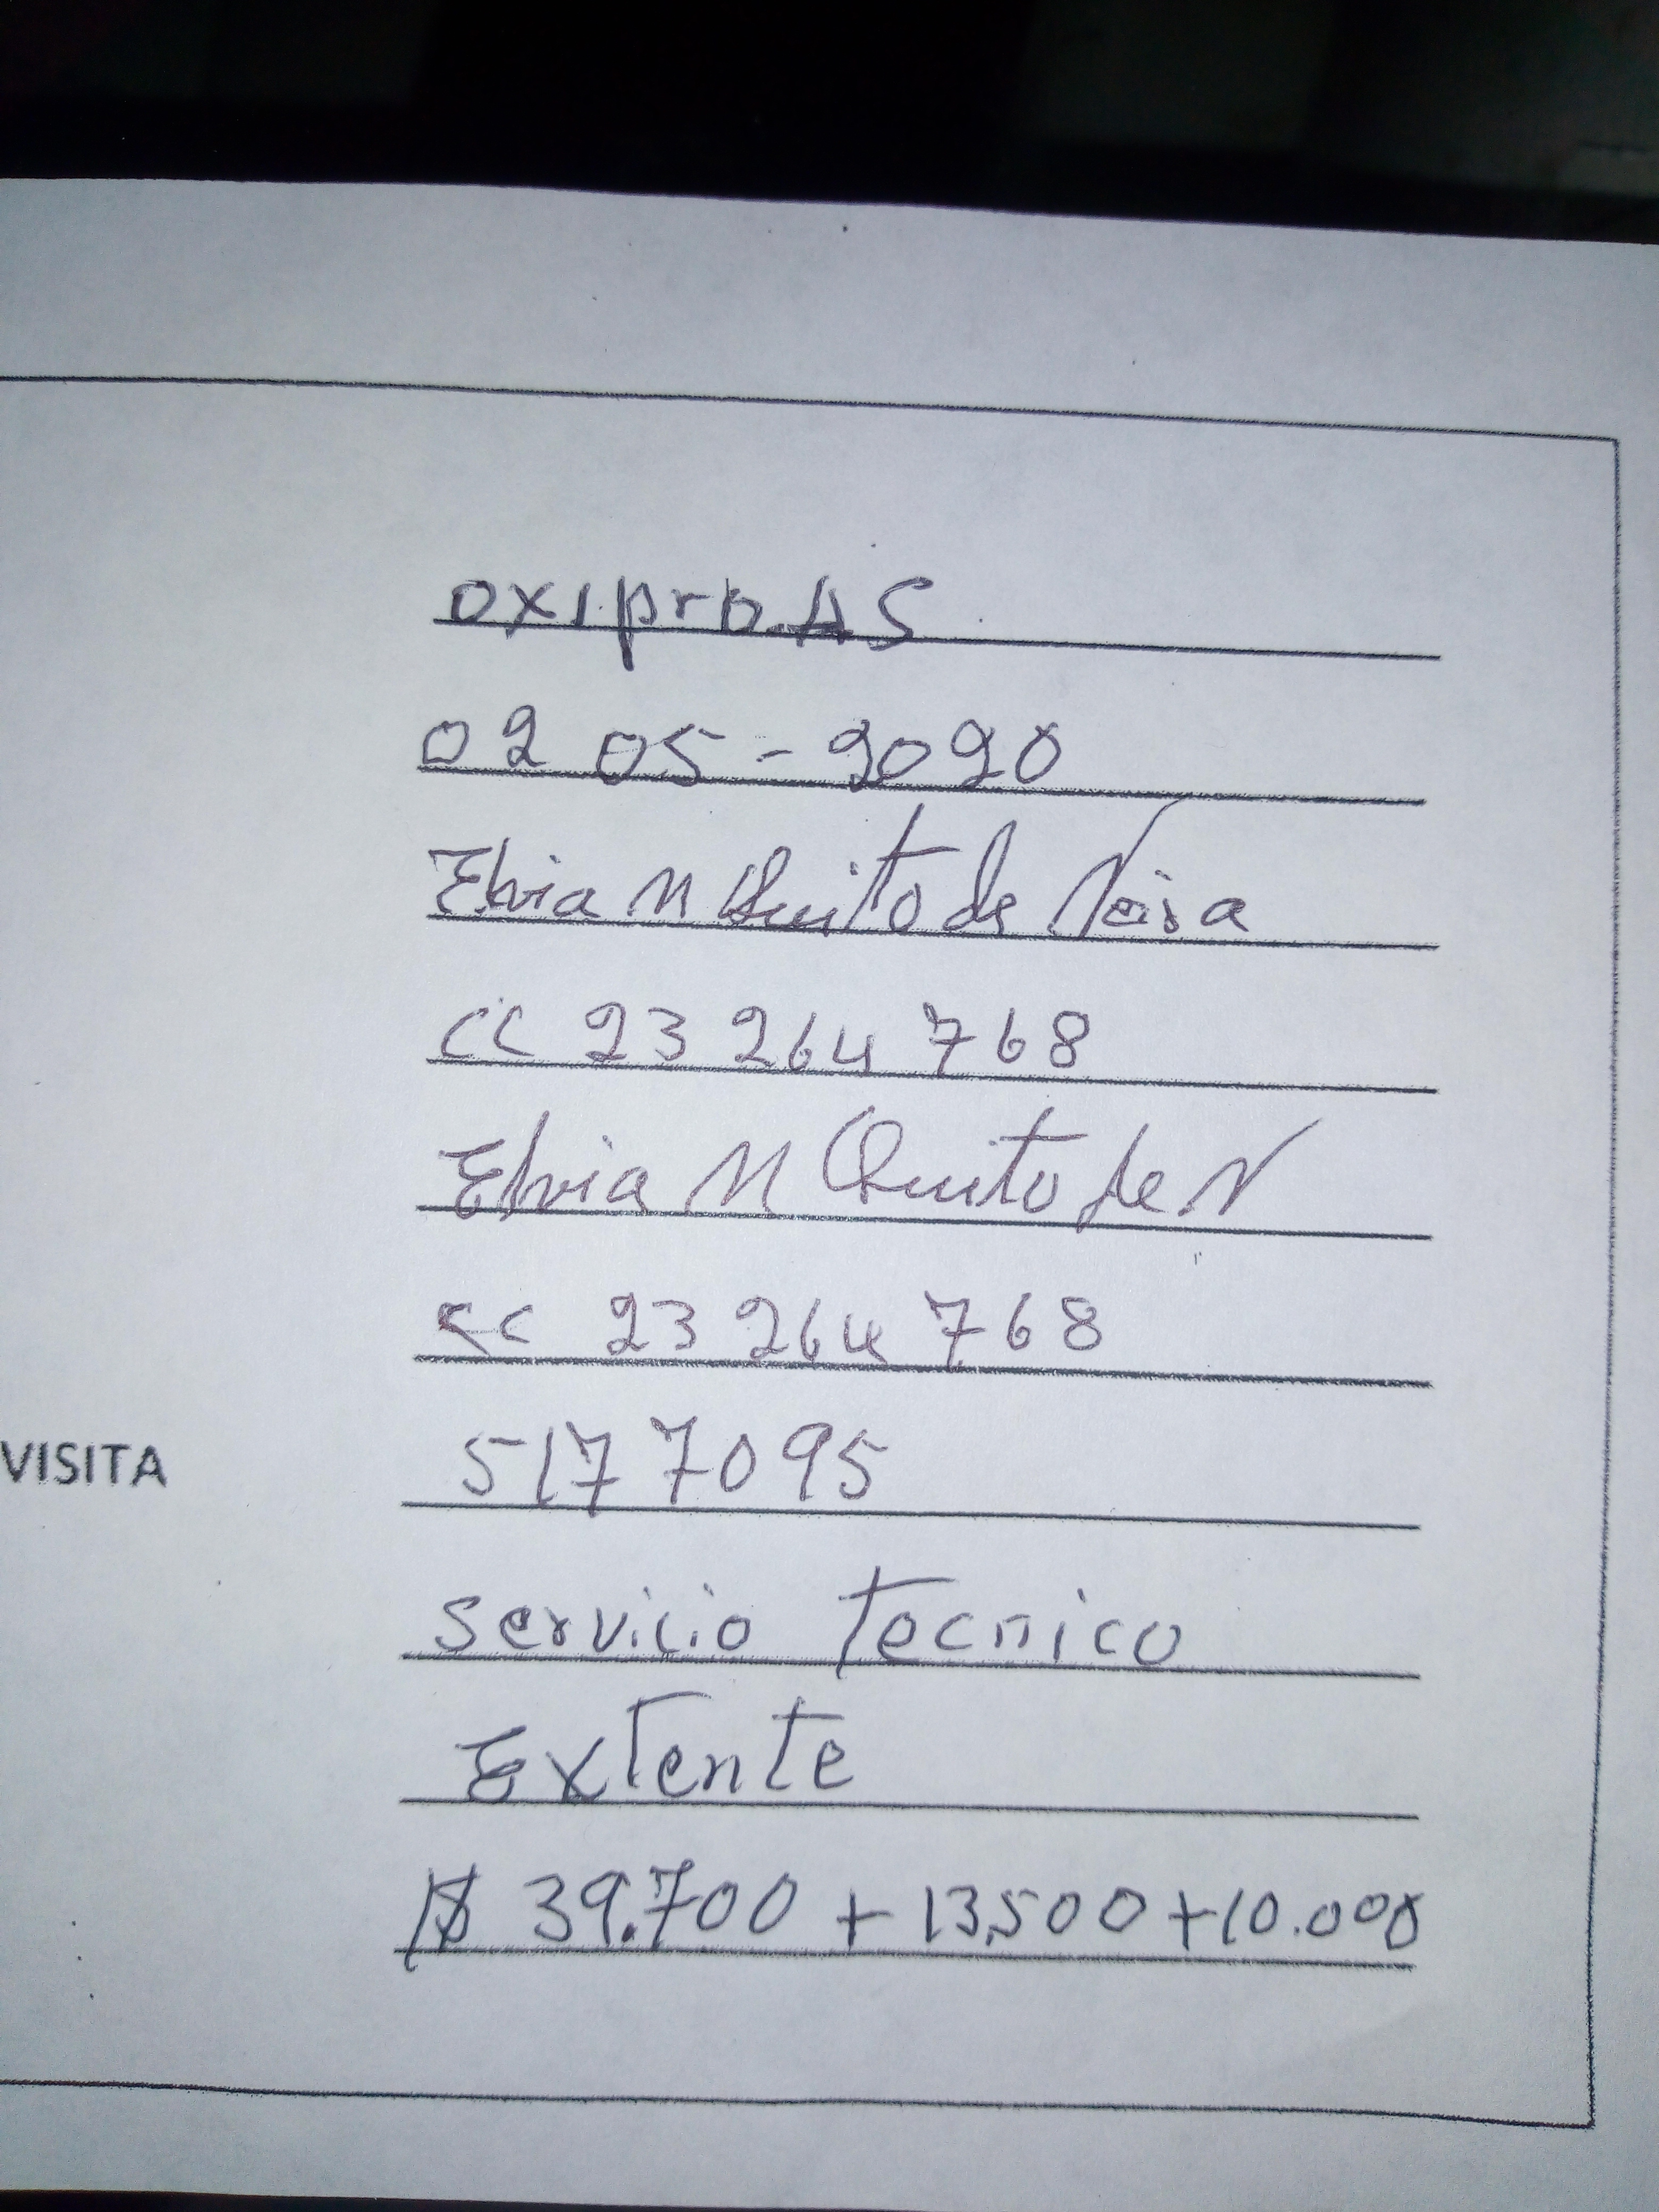 oxipro.AS
02 05 - 2020
Elvia M Quito de Neisa
CC 23 264 768
Elvia M Quito de N
CC 23 264 768
VISITA 517 7095
Servicio Tecnico
Extente
$ 39.700 + 13,500 + 10.000